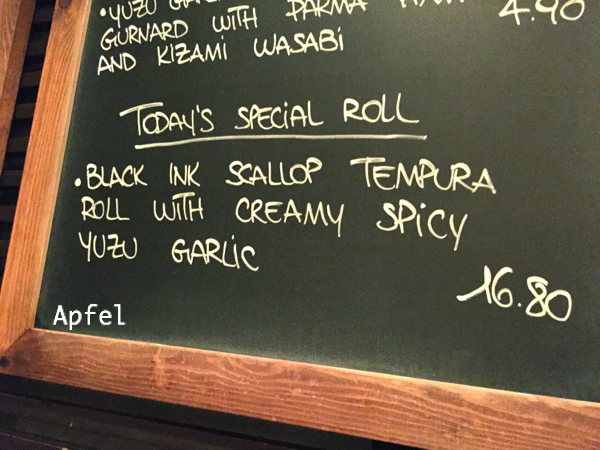 • YUZU
GURNARD WITH PARMA HAM 4.90
AND KIZAMI WASABI
TODAY'S SPECIAL ROLL
• BLACK INK SCALLOP TEMPURA
ROLL WITH CREAMY SPICY
YUZU GARLIC
16.80
Apfel